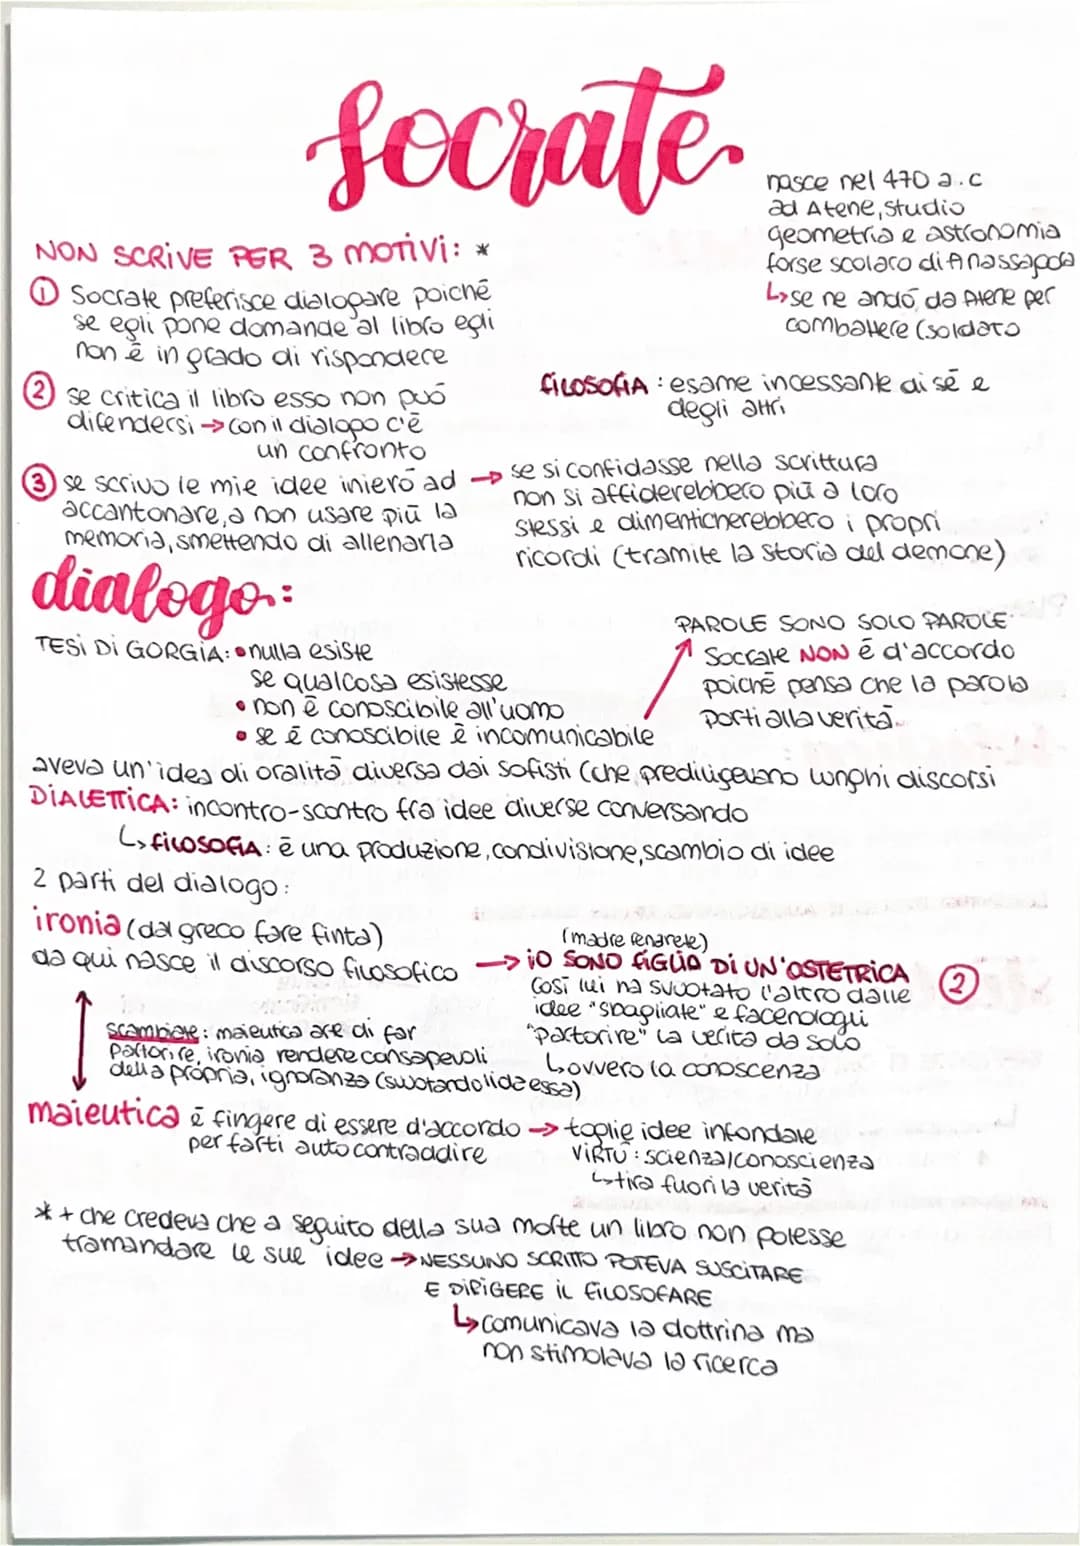 Socrate
nasce nel 470 a.c
ad Atene, studio
geometria e astronomia
forse scolaro di Anassagora
↳se ne andò da Atene per
combattere (soldato
NON SCRIVE PER 3 MOTIVI: *
① Socrate preferisce dialogare poiché
se egli pone domande al libro egli
non è in grado di rispondere
② se critica il libro esso non può
difendersi → con il dialogo c'è
un confronto
FILOSOFIA : esame incessante di sé e
degli altri
③ se scrivo le mie idee inierò ad →
accantonare, a non usare più la
memoria, smettendo di allenarla
se si confidasse nella scrittura
non si affiderebbero più a loro
stessi e dimenticherebbero i propri
ricordi (tramite la storia del demone)
dialogo:
TESI DI GORGIA: • nulla esiste
se qualcosa esistesse
• non è conoscibile all'uomo
• se è conoscibile è incomunicabile
PAROLE SONO SOLO PAROLE
Socrate NON é d'accordo
poiché pensa che la parola
porti alla verità.
aveva un'idea di oralità diversa dai sofisti (che prediligevano lunghi discorsi
DIALETTICA: incontro-scontro fra idee diverse conversando
↳ FILOSOFIA: è una produzione, condivisione, scambio di idee
2 parti del dialogo:
ironia (dal greco fare finta)
da qui nasce il discorso filosofico
(madre Fenarete)
→ iO SONO FIGLIO DI UN'OSTETRICA ②
Così lui ha svuotato l'altro dalle
idee "sbagliate" e facendogli
"partorire" la verità da solo
↳ ovvero la conoscenza
scambiate: maieutica arte di far
partorire, ironia rendere consapevoli
della propria, ignoranza (svuotando l'idea essa)
maieutica è fingere di essere d'accordo → toglie idee infondate
per farti auto contraddire
VIRTÙ : scienza/conoscienza
↳ tira fuori la verità
* + che credeva che a seguito della sua morte un libro non potesse
tramandare le sue idee → NESSUNO SCRITTO POTEVA SUSCITARE
E DIRIGERE IL FILOSOFARE
↳ comunicava la dottrina ma
non stimolava la ricerca